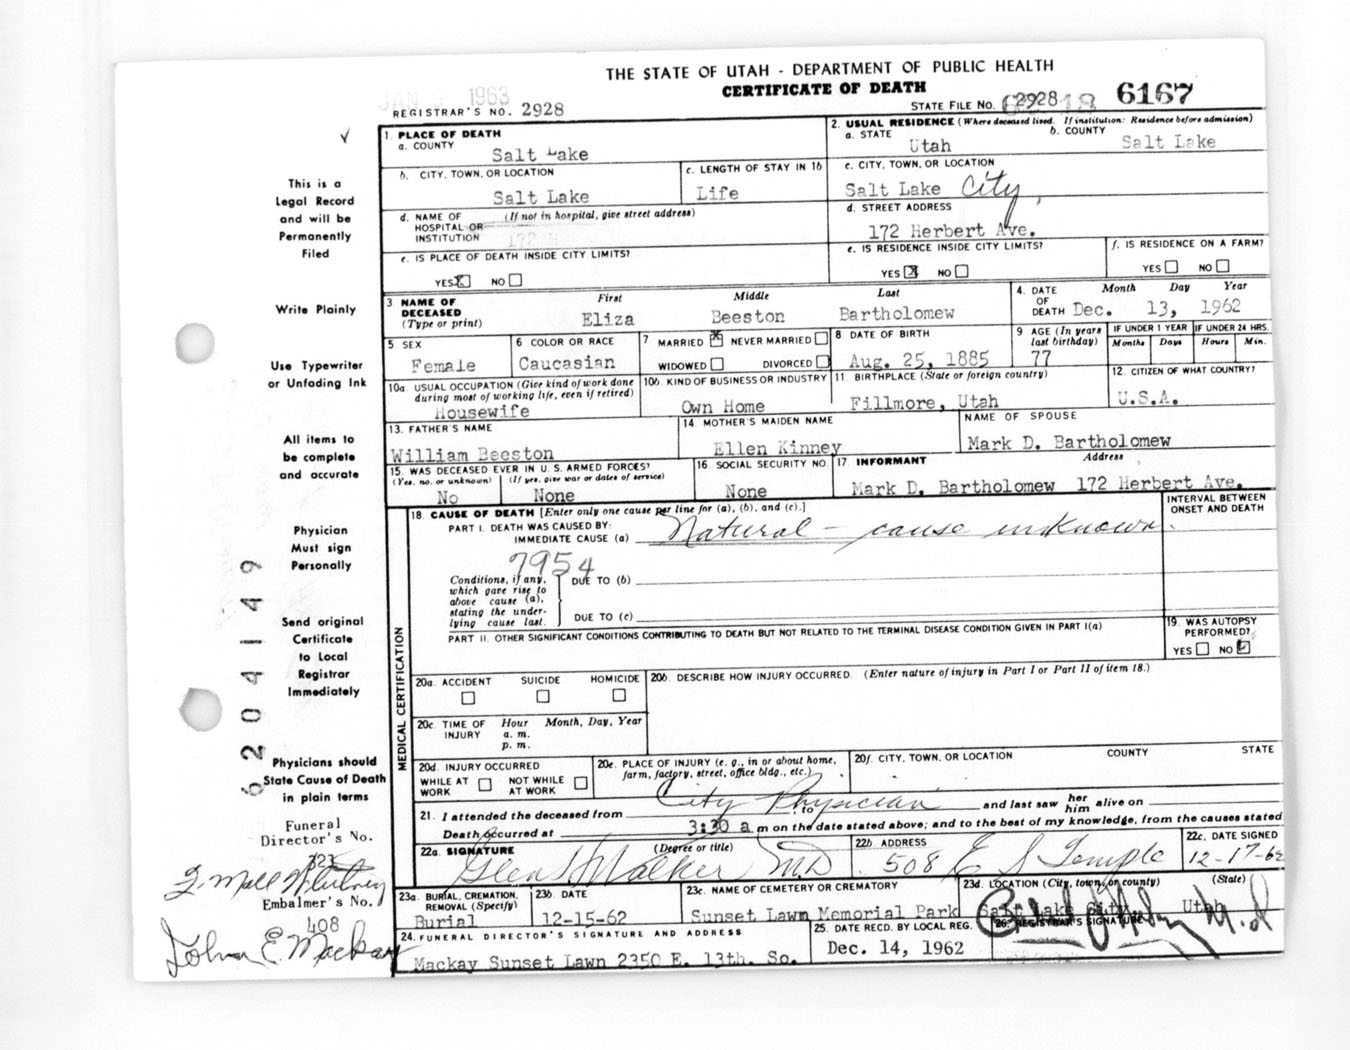 THE STATE OF UTAH - DEPARTMENT OF PUBLIC HEALTH
CERTIFICATE OF DEATH
JAN 1963
REGISTRAR'S NO. 2928
STATE FILE NO. 2928 18 6167
This is a
Legal Record
and will be
Permanently
Filed
Write Plainly
Use Typewriter
or Unfading Ink
All items to
be complete
and accurate
Physician
Must sign
Personally
Send original
Certificate
to Local
Registrar
Immediately
Physicians should
State Cause of Death
in plain terms
Funeral
Director's No.
321
Embalmer's No.
408
John E. Mackay
62 04149
1. PLACE OF DEATH
a. COUNTY
Salt Lake
2. USUAL RESIDENCE (Where deceased lived. If institution: Residence before admission)
a. STATE Utah
b. COUNTY Salt Lake
b. CITY, TOWN, OR LOCATION
Salt Lake
c. LENGTH OF STAY IN 1b
Life
c. CITY, TOWN, OR LOCATION
Salt Lake City
d. NAME OF (If not in hospital, give street address)
HOSPITAL OR
INSTITUTION 172
d. STREET ADDRESS
172 Herbert Ave.
e. IS PLACE OF DEATH INSIDE CITY LIMITS?
YES X NO
e. IS RESIDENCE INSIDE CITY LIMITS?
YES X NO
f. IS RESIDENCE ON A FARM?
YES NO
3 NAME OF DECEASED (Type or print)
First Middle Last
Eliza Beeston Bartholomew
4. DATE OF DEATH Month Day Year
Dec. 13, 1962
5 SEX
Female
6 COLOR OR RACE
Caucasian
7 MARRIED X NEVER MARRIED
WIDOWED DIVORCED
8 DATE OF BIRTH
Aug. 25, 1885
9 AGE (In years last birthday)
77
IF UNDER 1 YEAR
Months Days
IF UNDER 24 HRS.
Hours Min.
10a. USUAL OCCUPATION (Give kind of work done
during most of working life, even if retired)
Housewife
10b. KIND OF BUSINESS OR INDUSTRY
Own Home
11. BIRTHPLACE (State or foreign country)
Fillmore, Utah
12. CITIZEN OF WHAT COUNTRY?
U.S.A.
13. FATHER'S NAME
William Beeston
14. MOTHER'S MAIDEN NAME
Ellen Kinney
NAME OF SPOUSE
Mark D. Bartholomew
15. WAS DECEASED EVER IN U.S. ARMED FORCES?
(Yes, no. or unknown) (If yes, give war or dates of service)
No None
16. SOCIAL SECURITY NO.
None
17. INFORMANT Address
Mark D. Bartholomew 172 Herbert Ave.
MEDICAL CERTIFICATION
18. CAUSE OF DEATH [Enter only one cause per line for (a), (b), and (c).]
INTERVAL BETWEEN
ONSET AND DEATH
PART I. DEATH WAS CAUSED BY:
IMMEDIATE CAUSE (a) Natural - cause unknown.
7954
Conditions, if any,
which gave rise to
above cause (a),
stating the under-
lying cause last.
DUE TO (b)
DUE TO (c)
PART II. OTHER SIGNIFICANT CONDITIONS CONTRIBUTING TO DEATH BUT NOT RELATED TO THE TERMINAL DISEASE CONDITION GIVEN IN PART I(a)
19. WAS AUTOPSY
PERFORMED?
YES NO
20a. ACCIDENT SUICIDE HOMICIDE
20b. DESCRIBE HOW INJURY OCCURRED. (Enter nature of injury in Part I or Part II of item 18.)
20c. TIME OF INJURY Hour Month, Day, Year
a. m.
p. m.
20d. INJURY OCCURRED
WHILE AT WORK NOT WHILE AT WORK
20e. PLACE OF INJURY (e. g., in or about home,
farm, factory, street, office bldg., etc.)
20f. CITY, TOWN, OR LOCATION COUNTY STATE
City Physician
21. I attended the deceased from to and last saw her him alive on
Death occurred at 3:30 a m on the date stated above; and to the best of my knowledge, from the causes stated
22a. SIGNATURE (Degree or title)
Glen Walker M.D.
22b. ADDRESS
508 E S Temple
22c. DATE SIGNED
12-17-62
23a. BURIAL, CREMATION,
REMOVAL (Specify)
Burial
23b. DATE
12-15-62
23c. NAME OF CEMETERY OR CREMATORY
Sunset Lawn Memorial Park
23d. LOCATION (City, town, or county) (State)
Salt Lake City Utah
24. FUNERAL DIRECTOR'S SIGNATURE AND ADDRESS
Mackay Sunset Lawn 2350 E. 13th. So.
25. DATE RECD. BY LOCAL REG.
Dec. 14, 1962
26. REGISTRAR'S SIGNATURE
M.D